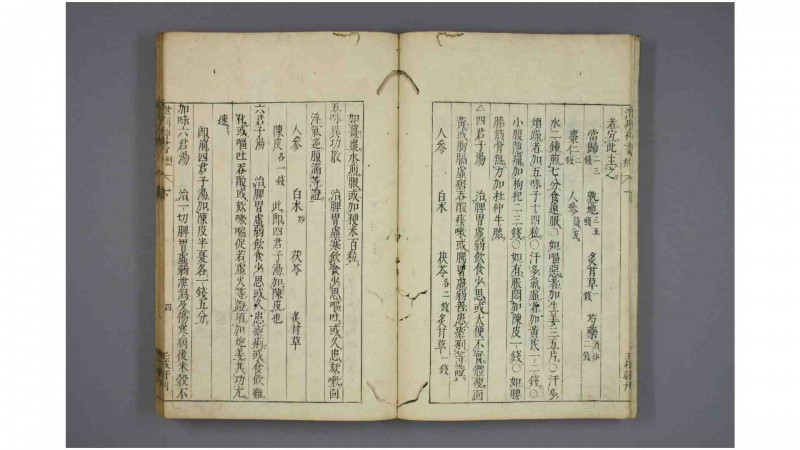 者宜此主之
當歸 二三錢 熟地 三五錢 炙甘草 一錢 芍藥 酒炒 二錢
棗仁 二錢 人參
水二鍾煎七分食遠服○如嘔惡者加生姜三五片○汗多
煩躁者加五味子十四粒○汗多氣虛者加黃芪一二錢○
小腹隱痛加枸杞二三錢○如有脹悶加陳皮一錢○如腰
膝筋骨無力加杜仲牛膝
四君子湯 治脾胃虛弱飲食少思或大便不實體瘦面
黃或胸膈虛痞吞酸痰嗽或脾胃虛弱善患瘧痢等證
人參 白朮 茯苓 各二錢 炙甘草 一錢
如薑棗水煎服或加粳米百粒
五味異功散 治脾胃虛寒飲食少思嘔吐或久患欬嗽面
浮氣逆腹滿等證
人參 白朮 炒 茯苓 炙甘草
陳皮 各一錢 此即四君子湯加陳皮也
六君子湯 治脾胃虛弱飲食少思或久患瘧痢或食飲難
化或嘔吐吞酸或欬嗽喘促若虛火等證須加炮姜其功尤
速
即前四君子湯加陳皮半夏各一錢五分
加味六君湯 治一切脾胃虛弱泄瀉及傷寒病後米穀不
四